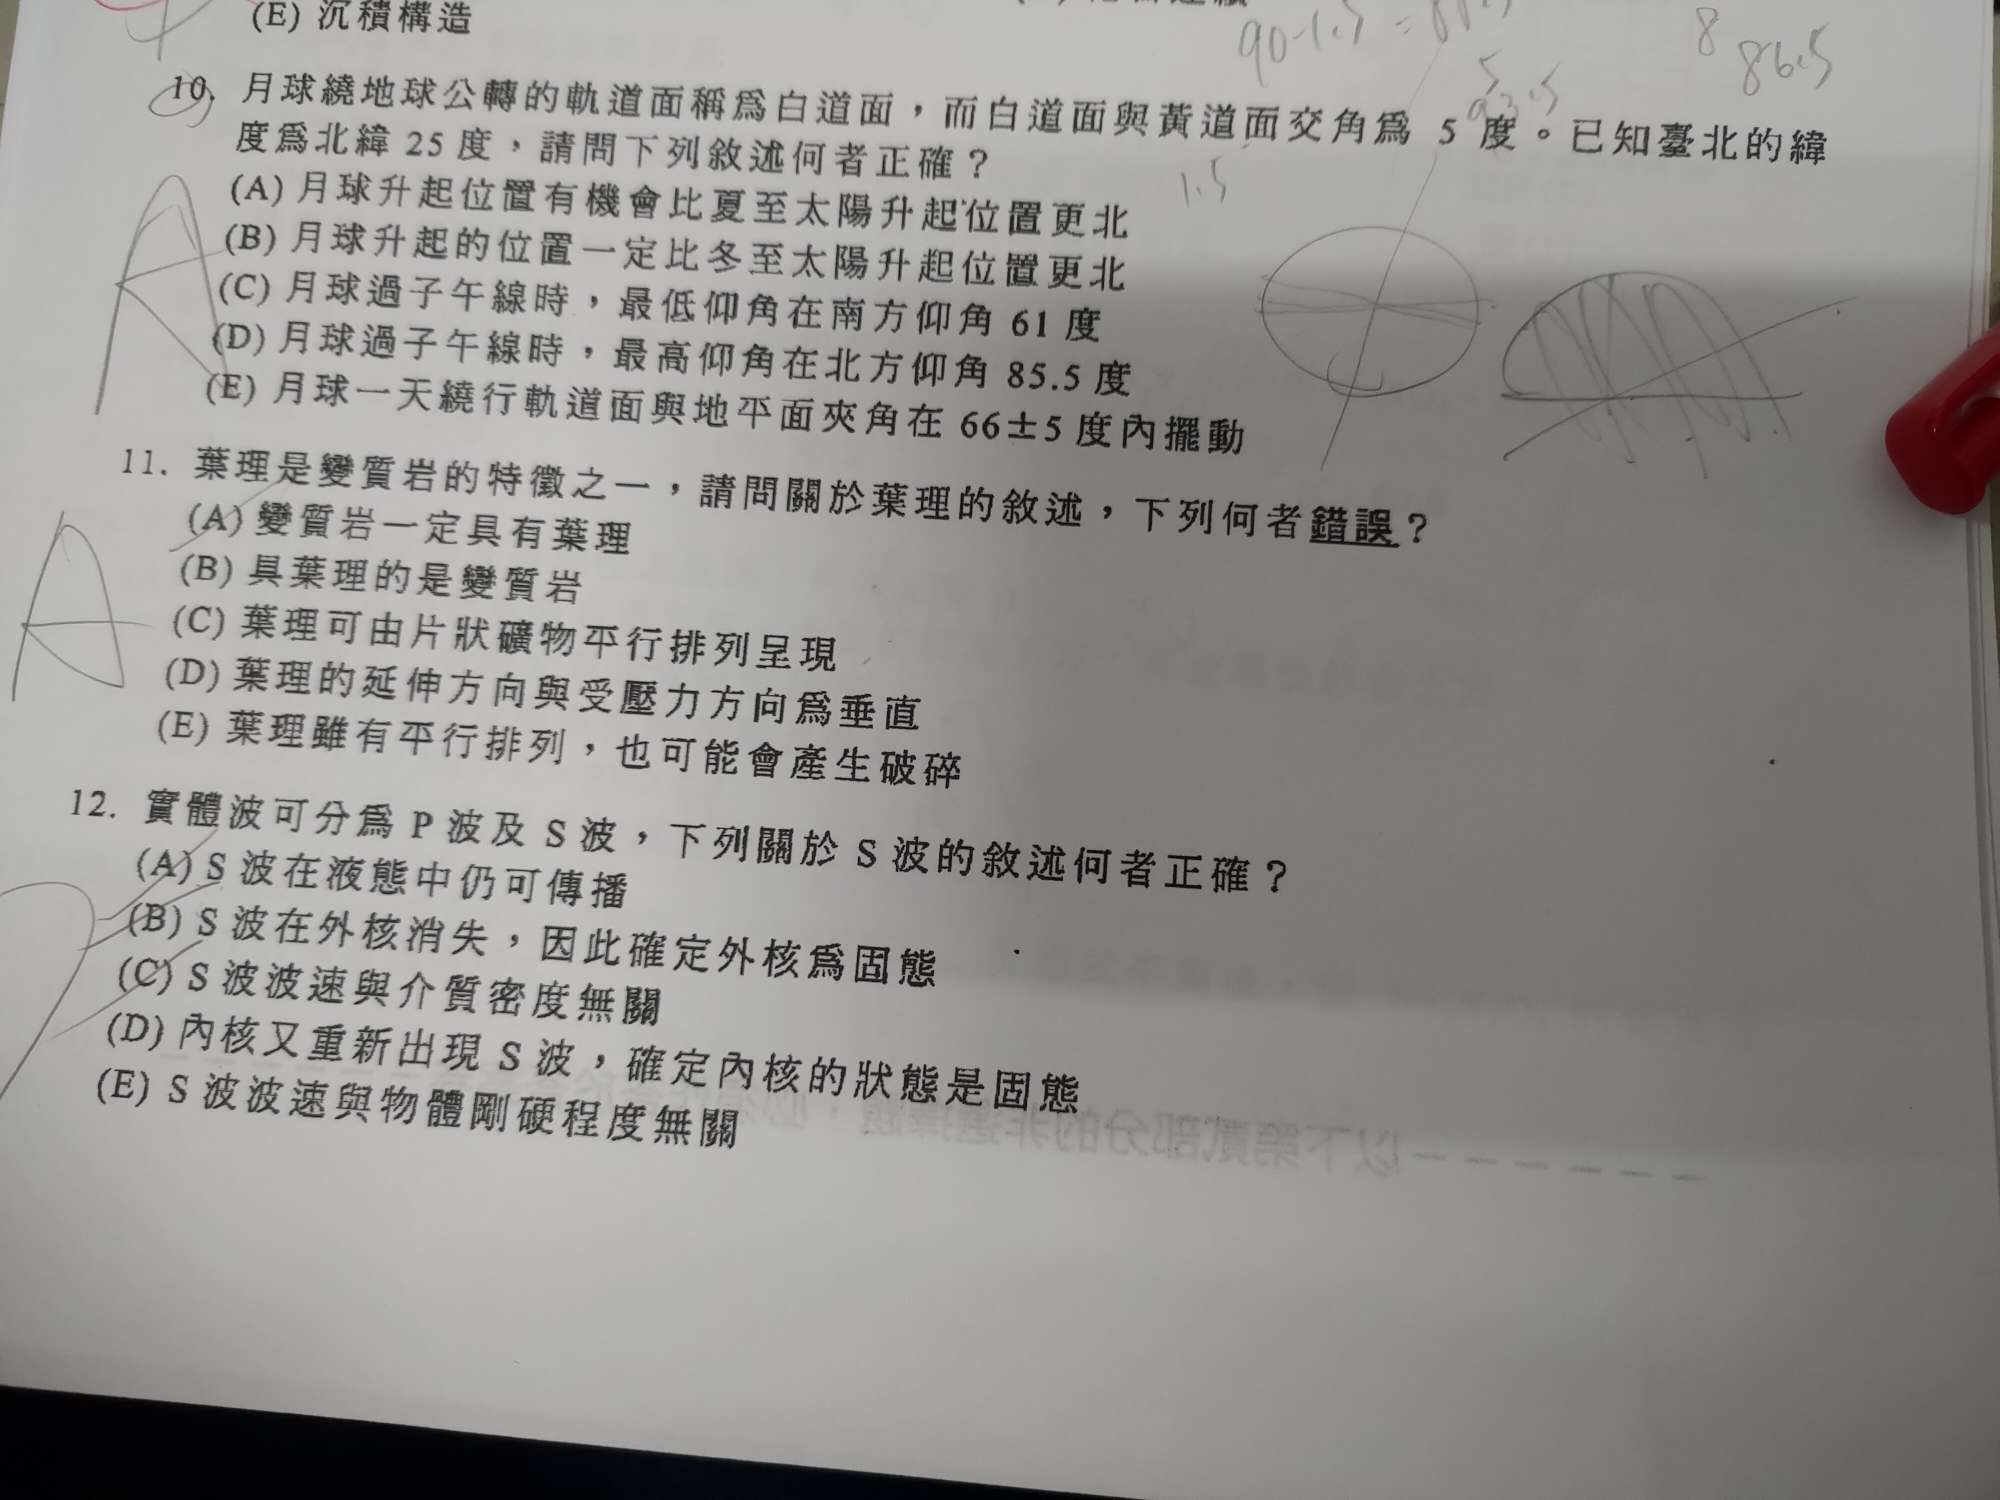 (E) 沉積構造
90-1.5 =
8
86.5
5
93.5
10. 月球繞地球公轉的軌道面稱爲白道面，而白道面與黃道面交角爲 5 度。已知臺北的緯
度爲北緯 25 度，請問下列敘述何者正確？
1.5
(A) 月球升起位置有機會比夏至太陽升起位置更北
(B) 月球升起的位置一定比冬至太陽升起位置更北
(C) 月球過子午線時，最低仰角在南方仰角 61 度
(D) 月球過子午線時，最高仰角在北方仰角 85.5 度
(E) 月球一天繞行軌道面與地平面夾角在 66±5 度內擺動
A
11. 葉理是變質岩的特徵之一，請問關於葉理的敘述，下列何者錯誤？
(A) 變質岩一定具有葉理
(B) 具葉理的是變質岩
(C) 葉理可由片狀礦物平行排列呈現
(D) 葉理的延伸方向與受壓力方向爲垂直
(E) 葉理雖有平行排列，也可能會產生破碎
A
12. 實體波可分爲 P 波及 S 波，下列關於 S 波的敘述何者正確？
(A) S 波在液態中仍可傳播
(B) S 波在外核消失，因此確定外核爲固態
(C) S 波波速與介質密度無關
(D) 內核又重新出現 S 波，確定內核的狀態是固態
(E) S 波波速與物體剛硬程度無關